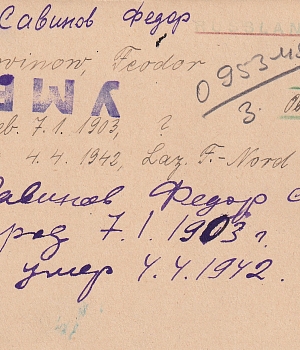 Савинов Федор
ovinow, Feodor
0953
УМЕ
3.
eb. 7.1.1903, ?
4.4.1942, Laz. F.-Nord
авинов Федор
род 7.1.1903 г.
умер 4.4.1942.